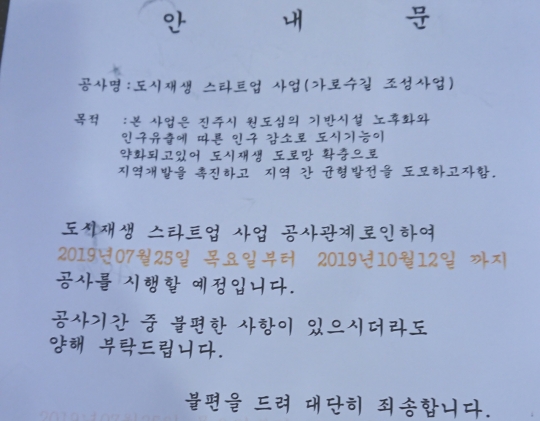 안 내 문
공사명:도시재생 스타트업 사업(가로수길 조성사업)
목적 :본 사업은 진주시 원도심의 기반시설 노후화와
인구유출에 따른 인구 감소로 도시기능이
약화되고있어 도시재생 도로망 확충으로
지역개발을 촉진하고 지역 간 균형발전을 도모하고자함.
도시재생 스타트업 사업 공사관계로인하여
2019년07월25일 목요일부터 2019년10월12일 까지
공사를 시행할 예정입니다.
공사기간 중 불편한 사항이 있으시더라도
양해 부탁드립니다.
불편을 드려 대단히 죄송합니다.